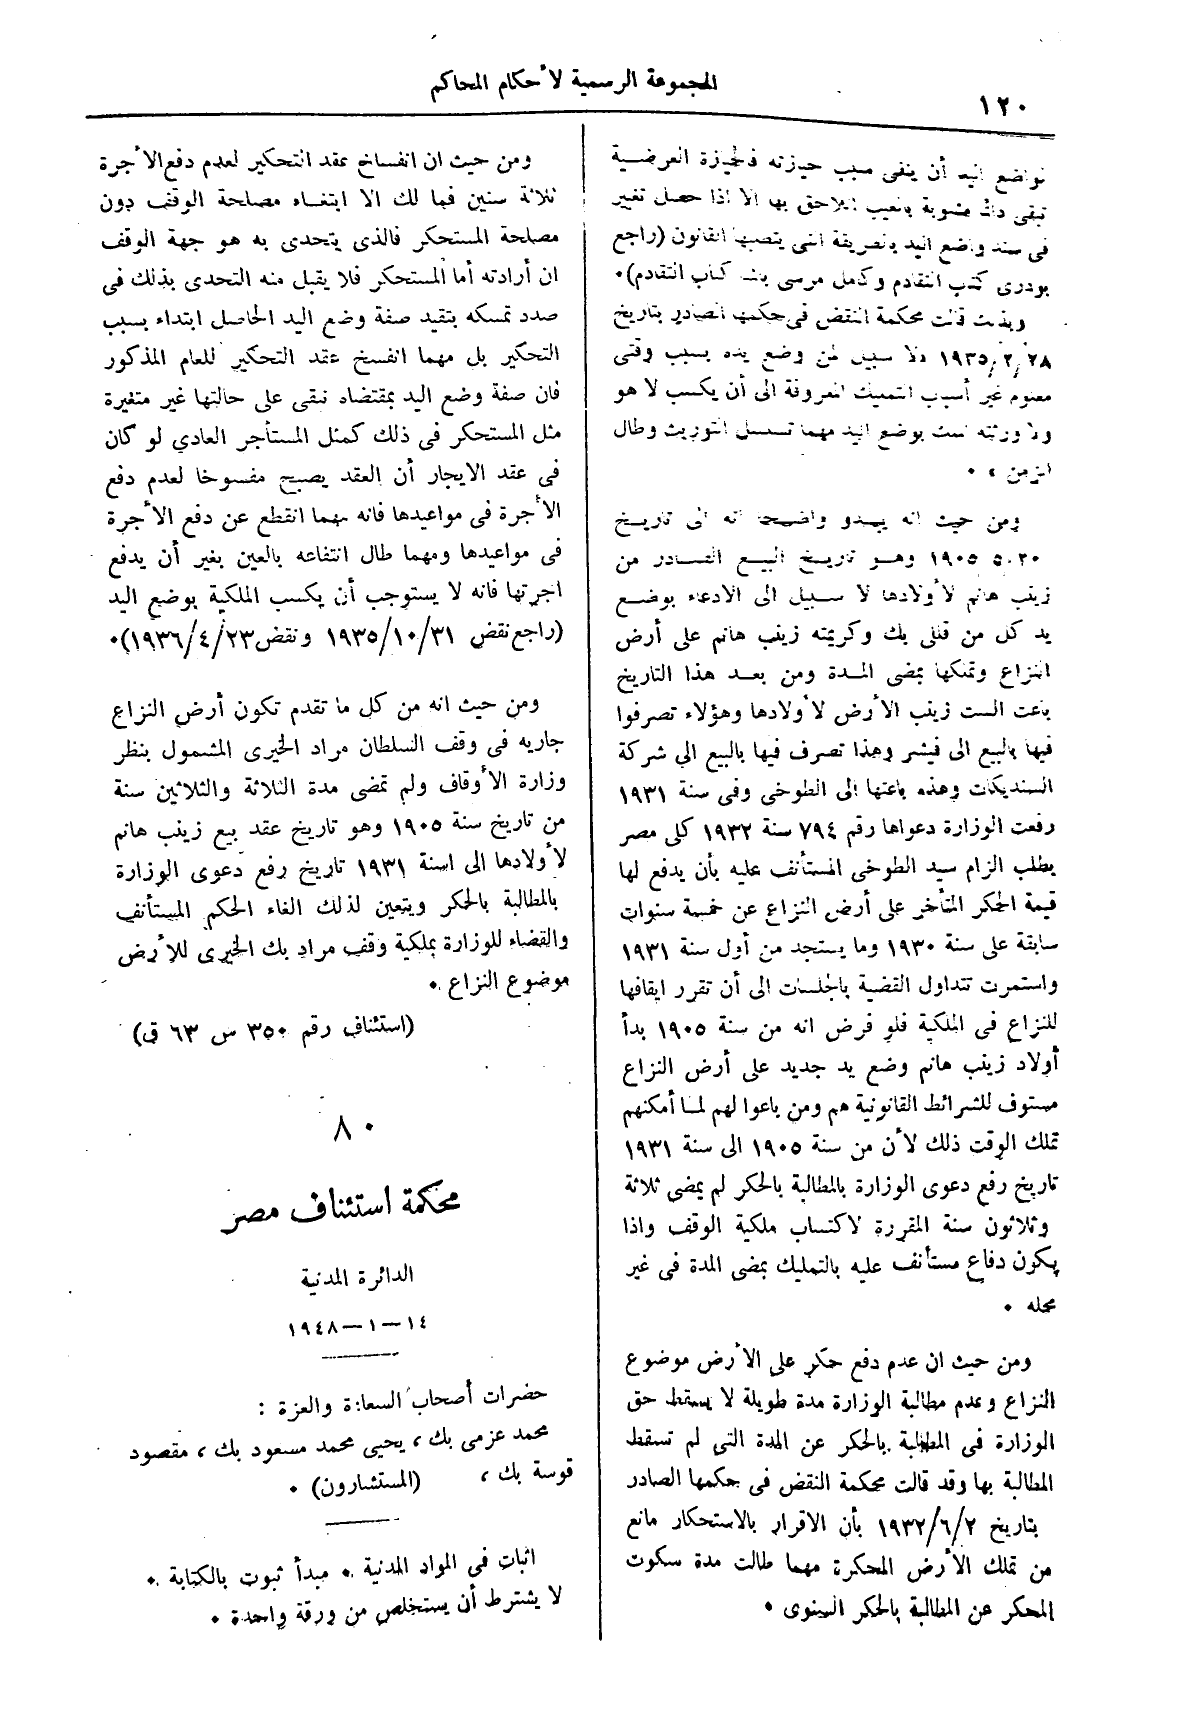 المجموعة الرسمية لأحكام المحاكم
١٢٠
لواضع اليد أن ينفى سبب حيازته فالحيازة العرضية
تبقى دائما مشوبة بالعيب اللاحق بها الا اذا حصل تغيير
فى سند واضع اليد بالطريقة التى ينصبها القانون (راجع
بودرى كتاب التقادم وكامل مرسى باشا كتاب التقادم)٠
وبذلك قالت محكمة النقض فى حكمها الصادر بتاريخ
١٩٣٥/٢/٢٨ «لا سبيل لمن وضع يده بسبب وقتى
معلوم غير أسباب التمليك المعروفة الى أن يكسب لا هو
ولا ورثته الملك بوضع اليد مهما تسلسل التوريث وطال
الزمن » ٠
ومن حيث انه يبدو واضحا انه الى تاريخ
١٩٠٥ وهو تاريخ البيع الصادر من
زينب هانم لأولادها لا سبيل الى الادعاء بوضع
يد كل من قللى بك وكريمته زينب هانم على أرض
النزاع وتملكها بمضى المدة ومن بعد هذا التاريخ
باعت الست زينب الأرض لأولادها وهؤلاء تصرفوا
فيها بالبيع الى فيشر وهذا تصرف فيها بالبيع الى شركة
السنديكات وهذه باعتها الى الطوخى وفى سنة ١٩٣١
رفعت الوزارة دعواها رقم ٧٩٤ سنة ١٩٣٢ كلى مصر
بطلب الزام سيد الطوخى المستأنف عليه بأن يدفع لها
قيمة الحكر المتأخر على أرض النزاع عن خمسة سنوات
سابقة على سنة ١٩٣٠ وما يستجد من أول سنة ١٩٣١
واستمرت تتداول القضية بالجلسات الى أن تقرر ايقافها
للنزاع فى الملكية فلو فرض انه من سنة ١٩٠٥ بدأ
أولاد زينب هانم وضع يد جديد على أرض النزاع
مستوف للشرائط القانونية هم ومن باعوا لهم لما أمكنهم
تملك الوقت ذلك لأن من سنة ١٩٠٥ الى سنة ١٩٣١
تاريخ رفع دعوى الوزارة بالمطالبة بالحكر لم يمضى ثلاثة
وثلاثون سنة المقررة لاكتساب ملكية الوقف واذا
يكون دفاع مستأنف عليه بالتمليك بمضى المدة فى غير
محله ٠
ومن حيث ان عدم دفع حكر على الأرض موضوع
النزاع وعدم مطالبة الوزارة مدة طويلة لا يسقط حق
الوزارة فى المطالبة بالحكر عن المدة التى لم تسقط
المطالبة بها وقد قالت محكمة النقض فى حكمها الصادر
بتاريخ ١٩٣٢/٦/٢ بأن الاقرار بالاستحكار مانع
من تملك الأرض المحكرة مهما طالت مدة سكوت
المحكر عن المطالبة بالحكر السنوى ٠
ومن حيث ان انفساخ عقد التحكير لعدم دفع الأجرة
ثلاثة سنين فما لك الا ابتغاء مصلحة الوقف دون
مصلحة المستحكر فالذى يتحدى به هو جهة الوقف
ان أرادته أما المستحكر فلا يقبل منه التحدى بذلك فى
صدد تمسكه بتقيد صفة وضع اليد الحاصل ابتداء بسبب
التحكير بل مهما انفسخ عقد التحكير للعام المذكور
فان صفة وضع اليد بمقتضاه نبقى على حالتها غير متغيرة
مثل المستحكر فى ذلك كمثل المستأجر العادي لو كان
فى عقد الايجار أن العقد يصبح مفسوخا لعدم دفع
الأجرة فى مواعيدها فانه مهما انقطع عن دفع الأجرة
فى مواعيدها ومهما طال انتفاعه بالعين بغير أن يدفع
اجرتها فانه لا يستوجب أن يكسب الملكية بوضع اليد
(راجع نقض ١٩٣٥/١٠/٣١ ونقض ١٩٣٦/٤/٢٣)٠
ومن حيث انه من كل ما تقدم تكون أرض النزاع
جاريه فى وقف السلطان مراد الخيرى المشمول بنظر
وزارة الأوقاف ولم تمضى مدة الثلاثة والثلاثين سنة
من تاريخ سنة ١٩٠٥ وهو تاريخ عقد بيع زينب هانم
لأولادها الى اسنة ١٩٣١ تاريخ رفع دعوى الوزارة
بالمطالبة بالحكر ويتعين لذلك الغاء الحكم المستأنف
والقضاء للوزارة بملكية وقف مراد بك الخيرى للأرض
موضوع النزاع ٠
(استئناف رقم ٣٥٠ س ٦٣ ق)
٨٠
محكمة استئناف مصر
الدائرة المدنية
١٤—١—١٩٤٨
حضرات أصحاب السعادة والعزة :
محمد عزمى بك ، يحيى محمد مسعود بك ، مقصود
قوسة بك ، (المستشارون) ٠
اثبات فى المواد المدنية ٠ مبدأ ثبوت بالكتابة ٠
لا يشترط أن يستخلص من ورقة واحدة ٠